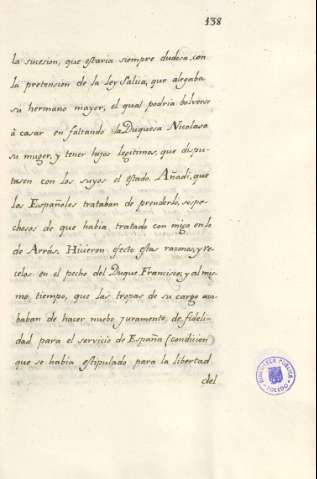 138
la sucesion, que estaria siempre dudosa, con
la pretension de la ley Salica, que alegaba
su hermano mayor, el qual podria bolverse
à casar en faltando la Duquesa Nicolasa
su muger, y tener hijos legitimos, que dispu-
tasen con los suyos el estado. Añadi, que
los Españoles trataban de prenderlo, sospe-
chosos de que habia tratado con migo en lo
de Arràs. Hicieron efecto estas razones, y re-
celos en el pecho del Duque Francisco; y al mis-
mo tiempo, que las tropas de su cargo aca-
baban de hacer nuebo juramento de fideli-
dad para el servicio de España (condicion
que se habia estipulado para la libertad
del
BIBLIOTECA PUBLICA
TOLEDO